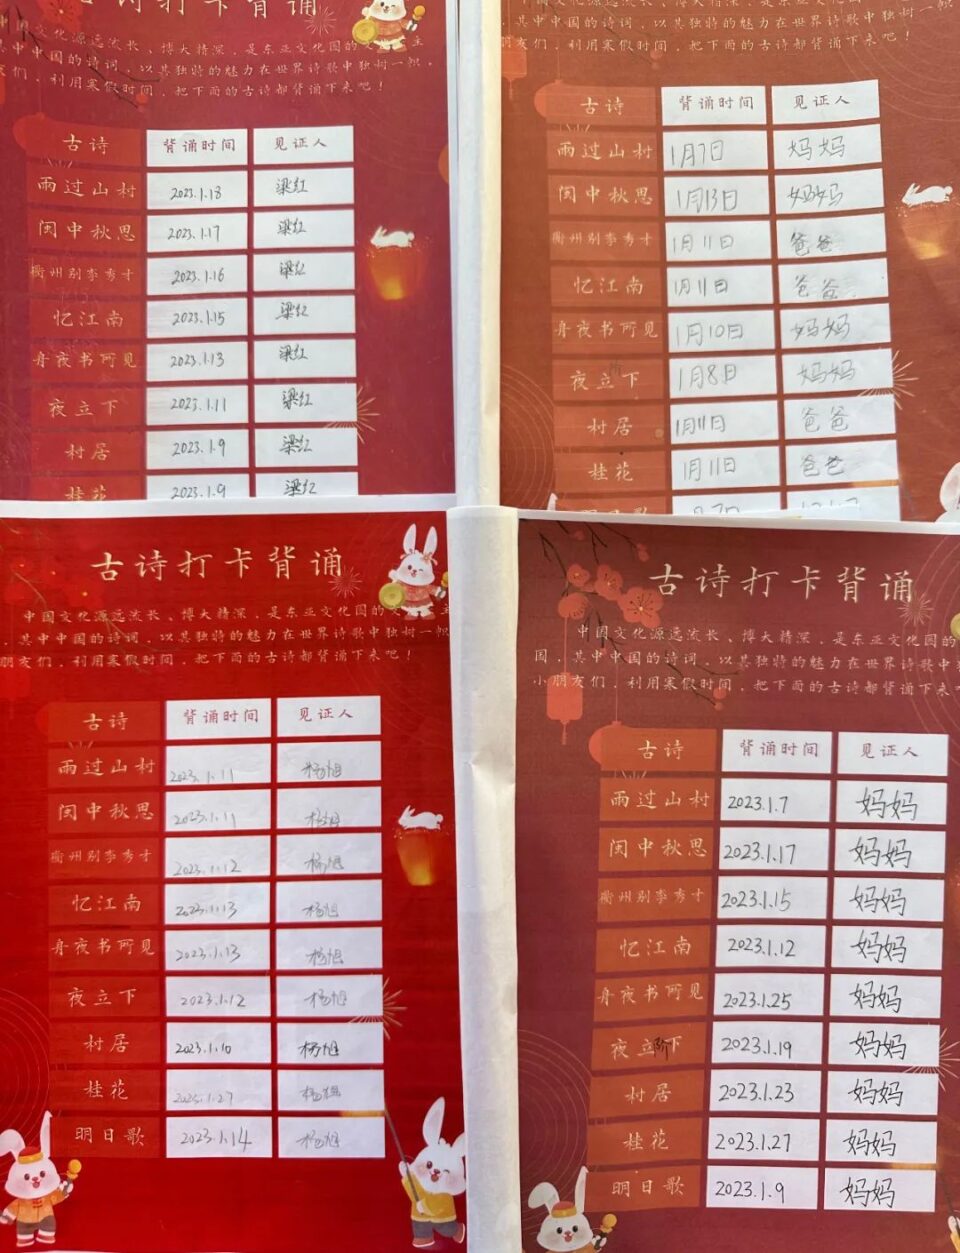 古诗打卡背诵
文化源远流长、博大精深，是东亚文化圈的
其中中国的诗词，以其独特的魅力在世界诗歌中独树一帜，
们，利用寒假时间，把下面的古诗都背诵下来吧！
古诗 背诵时间 见证人
雨过山村 2023.1.18 梁红
闽中秋思 2023.1.17 梁红
衢州别李秀才 2023.1.16 梁红
忆江南 2023.1.15 梁红
舟夜书所见 2023.1.13 梁红
夜立下 2023.1.11 梁红
村居 2023.1.9 梁红
桂花 2023.1.9 梁红
国，其中中国的诗词，以其独特的魅力在世界诗歌中独树一帜
朋友们，利用寒假时间，把下面的古诗都背诵下来吧！
古诗 背诵时间 见证人
雨过山村 1月7日 妈妈
闽中秋思 1月13日 妈妈
衢州别李秀才 1月11日 爸爸
忆江南 1月11日 爸爸
舟夜书所见 1月10日 妈妈
夜立阶下 1月8日 妈妈
村居 1月11日 爸爸
桂花 1月11日 爸爸
明日歌
古诗打卡背诵
中国文化源远流长、博大精深，是东亚文化圈的文 主
其中中国的诗词，以其独特的魅力在世界诗歌中独树一帜
朋友们，利用寒假时间，把下面的古诗都背诵下来吧！
古诗 背诵时间 见证人
雨过山村 2023.1.11 杨旭
闽中秋思 2023.1.11 杨旭
衢州别李秀才 2023.1.12 杨旭
忆江南 2023.1.13 杨旭
舟夜书所见 2023.1.13 杨旭
夜立下 2023.1.12 杨旭
村居 2023.1.10 杨旭
桂花 2023.1.27 杨旭
明日歌 2023.1.14 杨旭
古诗打卡背诵
中国文化源远流长、博大精深，是东亚文化圈的
国，其中中国的诗词，以其独特的魅力在世界诗歌中独
小朋友们，利用寒假时间，把下面的古诗都背诵下来吧
古诗 背诵时间 见证人
雨过山村 2023.1.7 妈妈
闽中秋思 2023.1.17 妈妈
衢州别李秀才 2023.1.15 妈妈
忆江南 2023.1.12 妈妈
舟夜书所见 2023.1.25 妈妈
夜立阶下 2023.1.19 妈妈
村居 2023.1.23 妈妈
桂花 2023.1.27 妈妈
明日歌 2023.1.9 妈妈